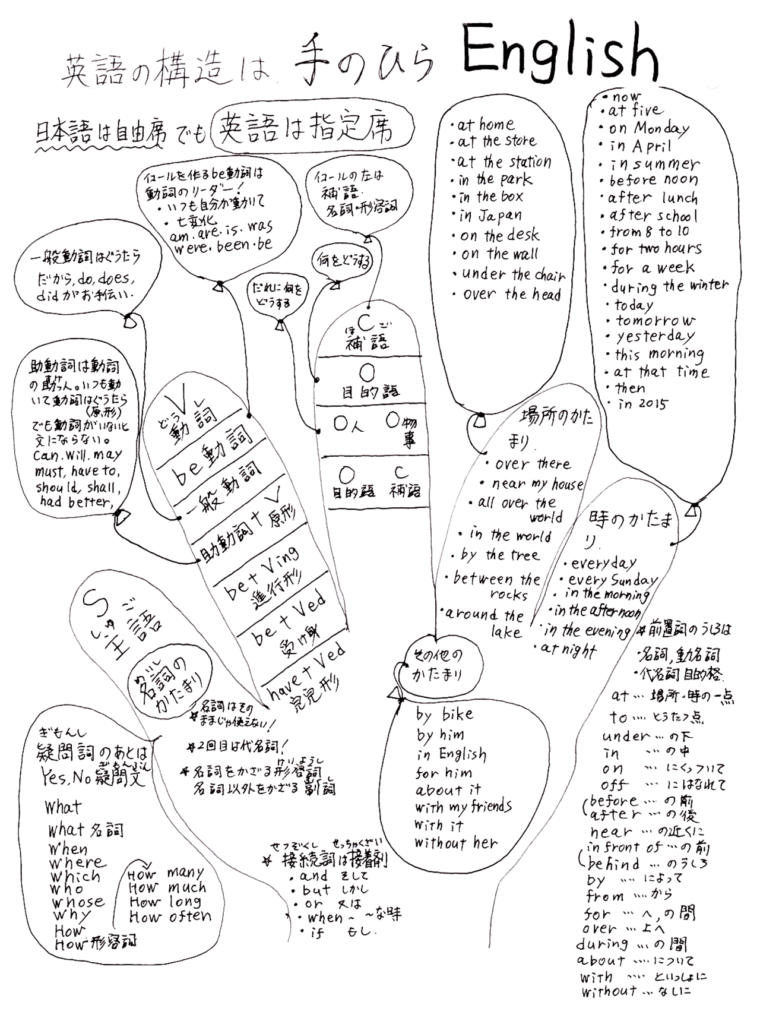 英語の構造は 手のひら English
日本語は自由席でも 英語は指定席
イコールを作るbe動詞は
動詞のリーダー!
・いつも自分が動かて
・七変化
am.are.is.was
were.been.be
イコールの左は
補語
名詞・形容詞
一般動詞はぐうたら
だから,do,does,
didがお手伝い.
だれに何を
どうする
何をどうする
助動詞は動詞
の助っ人。いつも動
いて動詞はぐうたら
(原形)
でも動詞がいないと
文にならない。
Can.will.may
must,have to,
should,shall,
had better,
S
しゅご
主語
名詞の
かたまり
V
どうし
動詞
be動詞
一般動詞
助動詞+V
原形
be+Ving
進行形
be+Ved
受け身
have+Ved
完了形
C
ほご
補語
O
目的語
O人 O物
事
O C
目的語 補語
・at home
・at the store
・at the station
・in the park
・in the box
・in Japan
・on the desk
・on the wall
・under the chair
・over the head
場所のかた
まり
・over there
・near my house
・all over the
world
・in the world
・by the tree
・between the
rocks
・around the
lake
・now
・at five
・on Monday
・in April
・in summer
・before noon
・after lunch
・after school
・from 8 to 10
・for two hours
・for a week
・during the winter
・today
・tomorrow
・yesterday
・this morning
・at that time
・then
・in 2015
時のかたま
り
・everyday
・every Sunday
・in the morning
・in the afternoon
・in the evening
・at night
その他の
かたまり
by bike
by him
in English
for him
about it
with my friends
with it
without her
*名詞はその
ままじゃ使えない!
*2回目は代名詞!
*名詞をかざる形容詞
けいようし
名詞以外をかざる副詞
ぎもんし
疑問詞のあとは
Yes,No疑問文
What
What 名詞
When
Where
Which
Who
Whose
Why
How
How 形容詞
How many
How much
How long
How often
せつぞくし せっちゃくざい
*接続詞は接着剤
・and そして
・but しかし
・or 又は
・when~ ~な時
・if もし.
*前置詞のうしろは
・名詞,動名詞
・代名詞目的格.
at … 場所・時の一点
to …. とうたつ点
under …の下
in 〃の中
on 〃にくっついて
off 〃にはなれて
before …の前
after …の後
near …の近くに
in front of …の前
behind …のうしろ
by …. によって
from ….から
for … へ,の間
over …上へ
during …の間
about ….について
with …. といっしょに
without …なしに